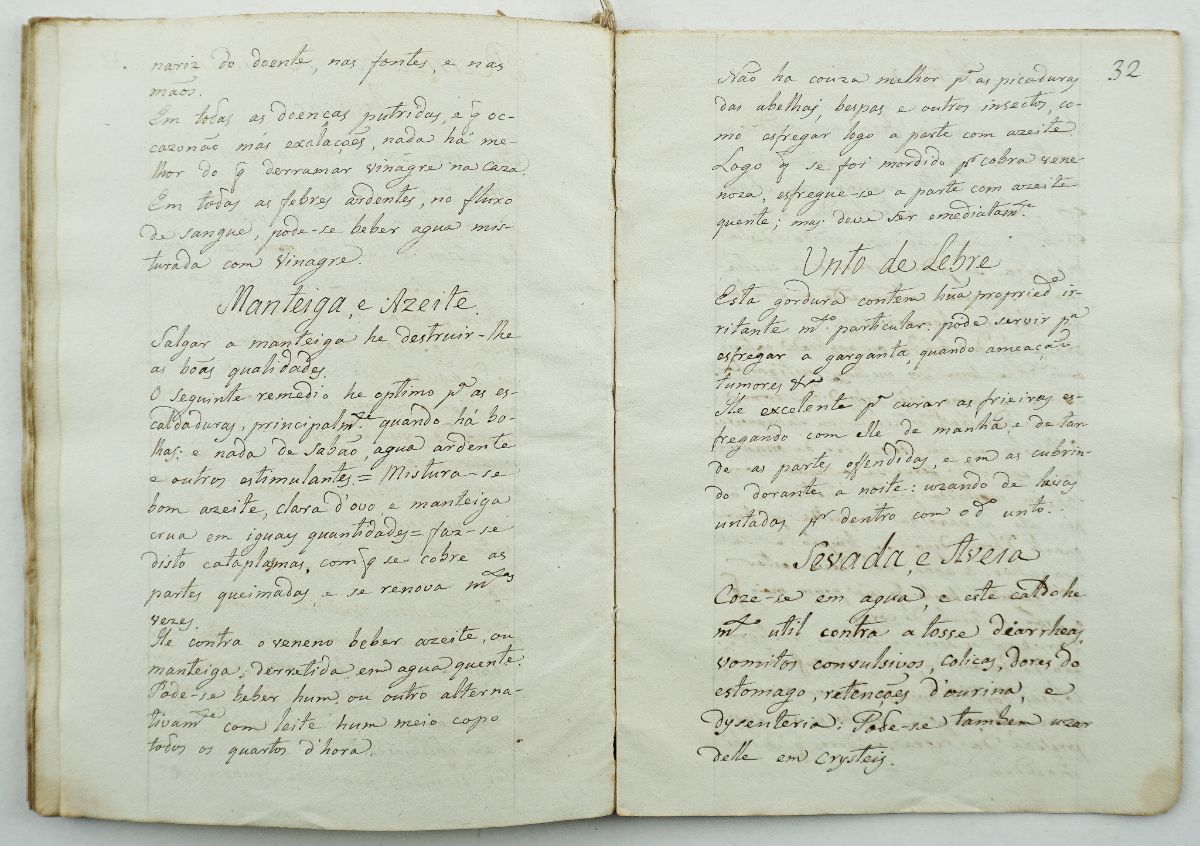 nariz do doente, nas fontes, e nas
mãos.
Em todas as doenças putridas, e q̃ oc-
cazonão más exalações, nada há me-
lhor do q̃ derramar vinagre na caza.
Em todas as febres ardentes, no fluxo
de sangue, pode-se beber agua mis-
turada com vinagre.
Manteiga, e Azeite.
Salgar a manteiga he destruir-lhe
as bõas qualidades.
O seguinte remedio he optimo pª as es-
caldaduras, principalmᵗᵉ quando há bo-
lhas: e nada de sabão, agua ardente
e outros estimulantes = Mistura-se
bom azeite, clara d'ovo, e manteiga
crua em iguaes quantidades = faz-se
disto cataplasmas, com q̃ se cobre as
partes queimadas, e se renova mᵗᵃˢ
vezes.
He contra o veneno beber azeite, ou
manteiga, derretida em agua quente.
Pode-se beber hum, ou outro alterna-
tivamᵗᵉ com leite hum meio copo
todos os quartos d'hora.
32
Não ha couza melhor pª as picaduras
das abelhas, bespas e outros insectos, co-
mo esfregar logo a parte com azeite
Logo q̃ se foi mordido pʳ cobra vene-
noza, esfregue-se a parte com azeite
quente; mas deve ser emediatamᵗᵉ
Unto de Lebre
Esta gordura contem hũa propriedᵉ ir-
ritante mᵗᵒ particular: pode servir pª
esfregar a garganta, quando ameação
tumores &ª
He excelente pª curar as frieiras es-
fregando com elle de manhã, e de tar-
de as partes offendidas, e em as cubrin-
do dorante a noite: uzando de luvas
untadas pʳ dentro com o dº unto.
Sevada, e Aveia
Coze-se em agua, e este caldo he
mᵗᵒ util contra a tosse diarrheas,
vomitos convulsivos, colicas, dores do
estomago, retenções d'ourina, e
dysenteria: Pode-se tambem uzar
delle em Crysteis.